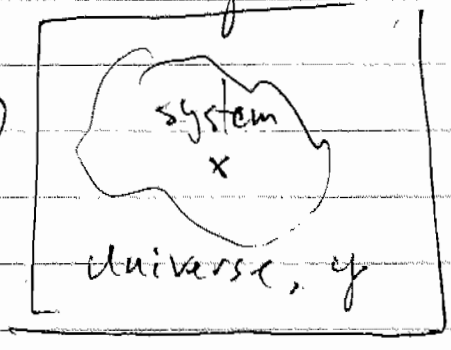 system
x
Universe, y